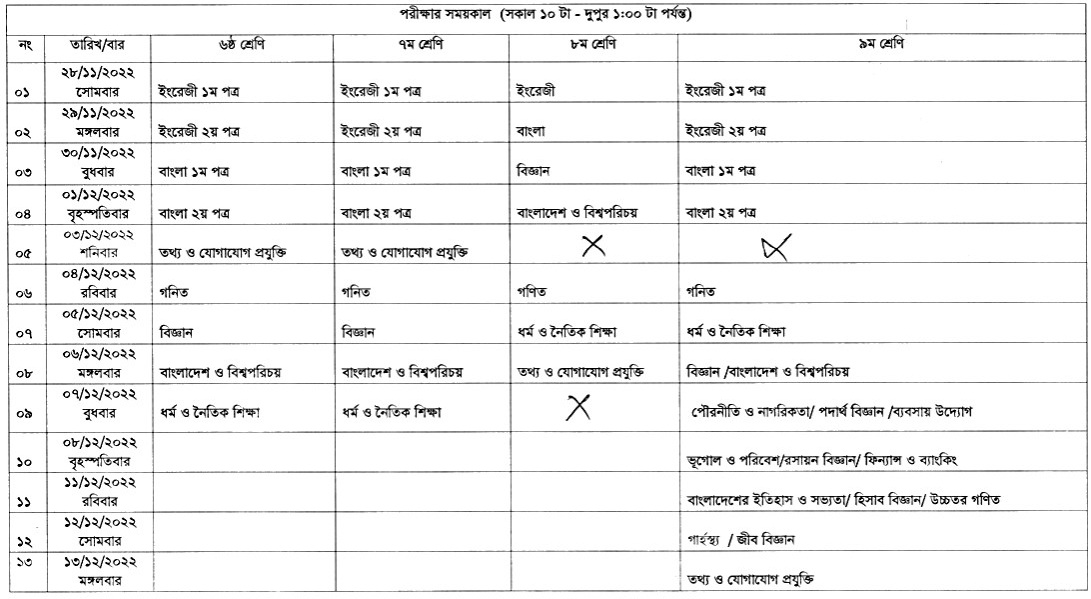 পরীক্ষার সময়কাল (সকাল ১০ টা - দুপুর ১:০০ টা পর্যন্ত)
নং তারিখ/বার ৬ষ্ঠ শ্রেণি ৭ম শ্রেণি ৮ম শ্রেণি ৯ম শ্রেণি
২৮/১১/২০২২
০১ সোমবার ইংরেজী ১ম পত্র ইংরেজী ১ম পত্র ইংরেজী ইংরেজী ১ম পত্র
২৯/১১/২০২২
০২ মঙ্গলবার ইংরেজী ২য় পত্র ইংরেজী ২য় পত্র বাংলা ইংরেজী ২য় পত্র
৩০/১১/২০২২
০৩ বুধবার বাংলা ১ম পত্র বাংলা ১ম পত্র বিজ্ঞান বাংলা ১ম পত্র
০১/১২/২০২২
০৪ বৃহস্পতিবার বাংলা ২য় পত্র বাংলা ২য় পত্র বাংলাদেশ ও বিশ্বপরিচয় বাংলা ২য় পত্র
০৩/১২/২০২২
০৫ শনিবার তথ্য ও যোগাযোগ প্রযুক্তি তথ্য ও যোগাযোগ প্রযুক্তি
০৪/১২/২০২২
০৬ রবিবার গনিত গনিত গণিত গনিত
০৫/১২/২০২২
০৭ সোমবার বিজ্ঞান বিজ্ঞান ধর্ম ও নৈতিক শিক্ষা ধর্ম ও নৈতিক শিক্ষা
০৬/১২/২০২২
০৮ মঙ্গলবার বাংলাদেশ ও বিশ্বপরিচয় বাংলাদেশ ও বিশ্বপরিচয় তথ্য ও যোগাযোগ প্রযুক্তি বিজ্ঞান /বাংলাদেশ ও বিশ্বপরিচয়
০৭/১২/২০২২
০৯ বুধবার ধর্ম ও নৈতিক শিক্ষা ধর্ম ও নৈতিক শিক্ষা পৌরনীতি ও নাগরিকতা/ পদার্থ বিজ্ঞান /ব্যবসায় উদ্যোগ
০৮/১২/২০২২
১০ বৃহস্পতিবার ভূগোল ও পরিবেশ/রসায়ন বিজ্ঞান/ ফিন্যান্স ও ব্যাংকিং
১১/১২/২০২২
১১ রবিবার বাংলাদেশের ইতিহাস ও সভ্যতা/ হিসাব বিজ্ঞান/ উচ্চতর গণিত
১২/১২/২০২২
১২ সোমবার গার্হস্থ্য / জীব বিজ্ঞান
১৩ ১৩/১২/২০২২
মঙ্গলবার তথ্য ও যোগাযোগ প্রযুক্তি